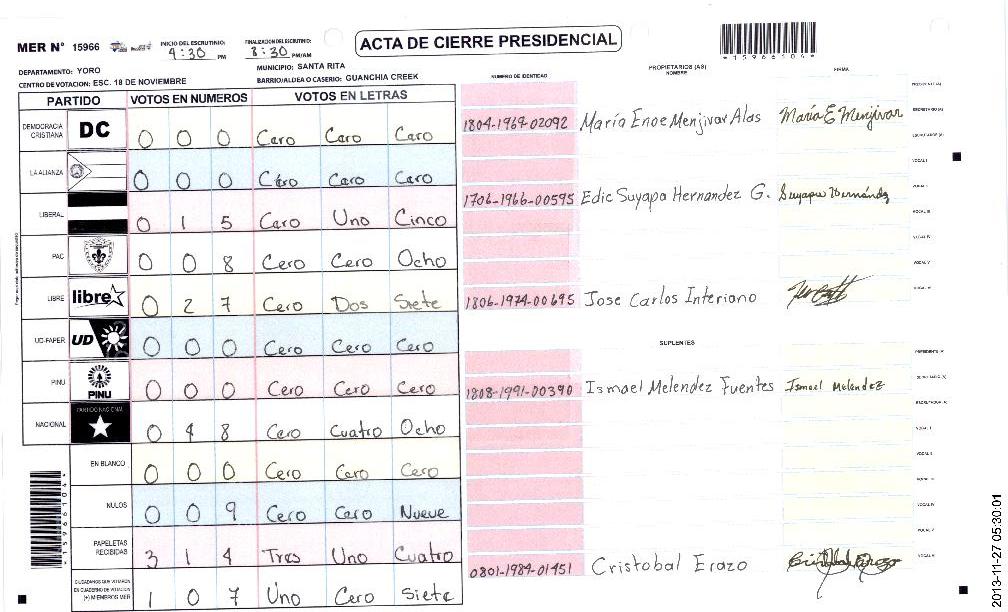 MER N° 15966
INICIO DEL ESCRUTINIO: 4:30 PM
FINALIZACION DEL ESCRUTINIO: 8:30 PM/AM
ACTA DE CIERRE PRESIDENCIAL
*15966104*
DEPARTAMENTO: YORO
MUNICIPIO: SANTA RITA
CENTRO DE VOTACION: ESC. 18 DE NOVIEMBRE
BARRIO/ALDEA O CASERIO: GUANCHIA CREEK
NUMERO DE IDENTIDAD
PROPIETARIOS (AS)
NOMBRE
FIRMA
PARTIDO VOTOS EN NUMEROS VOTOS EN LETRAS
DEMOCRACIA CRISTIANA DC 0 0 0 Caro Caro Caro
LA ALIANZA 0 0 0 Caro Caro Caro
LIBERAL 0 1 5 Caro Uno Cinco
PAC 0 0 8 Cero Cero Ocho
LIBRE libre 0 2 7 Cero Dos Siete
UD-FAPER UD 0 0 0 Cero Cero Cero
PINU PINU 0 0 0 Cero Cero Cero
NACIONAL PARTIDO NACIONAL 0 4 8 Cero Cuatro Ocho
EN BLANCO 0 0 0 Cero Cero Cero
NULOS 0 0 9 Cero Cero Nueve
PAPELETAS RECIBIDAS 3 1 4 Tres Uno Cuatro
CIUDADANOS QUE VOTARON EN CUADERNO DE VOTACION (+) MIEMBROS MER 1 0 7 Uno Cero Siete
PRESIDENTE (A)
1804-1969-02092 María Enoe Menjivar Alas María E Menjivar SECRETARIO (A)
ESCRUTADOR (A)
VOCAL I
1706-1966-00595 Edic Suyapa Hernandez G. Suyapa Hernández VOCAL II
VOCAL III
VOCAL IV
VOCAL V
1806-1974-00695 Jose Carlos Interiano VOCAL VI
SUPLENTES
PRESIDENTE (A)
1808-1991-00390 Ismael Melendez Fuentes Ismael Melendez SECRETARIO (A)
ESCRUTADOR (A)
VOCAL I
VOCAL II
VOCAL III
VOCAL IV
VOCAL V
0801-1984-01451 Cristobal Erazo Cristobal Erazo VOCAL VI
*15966104*
2013-11-27 05:30:01